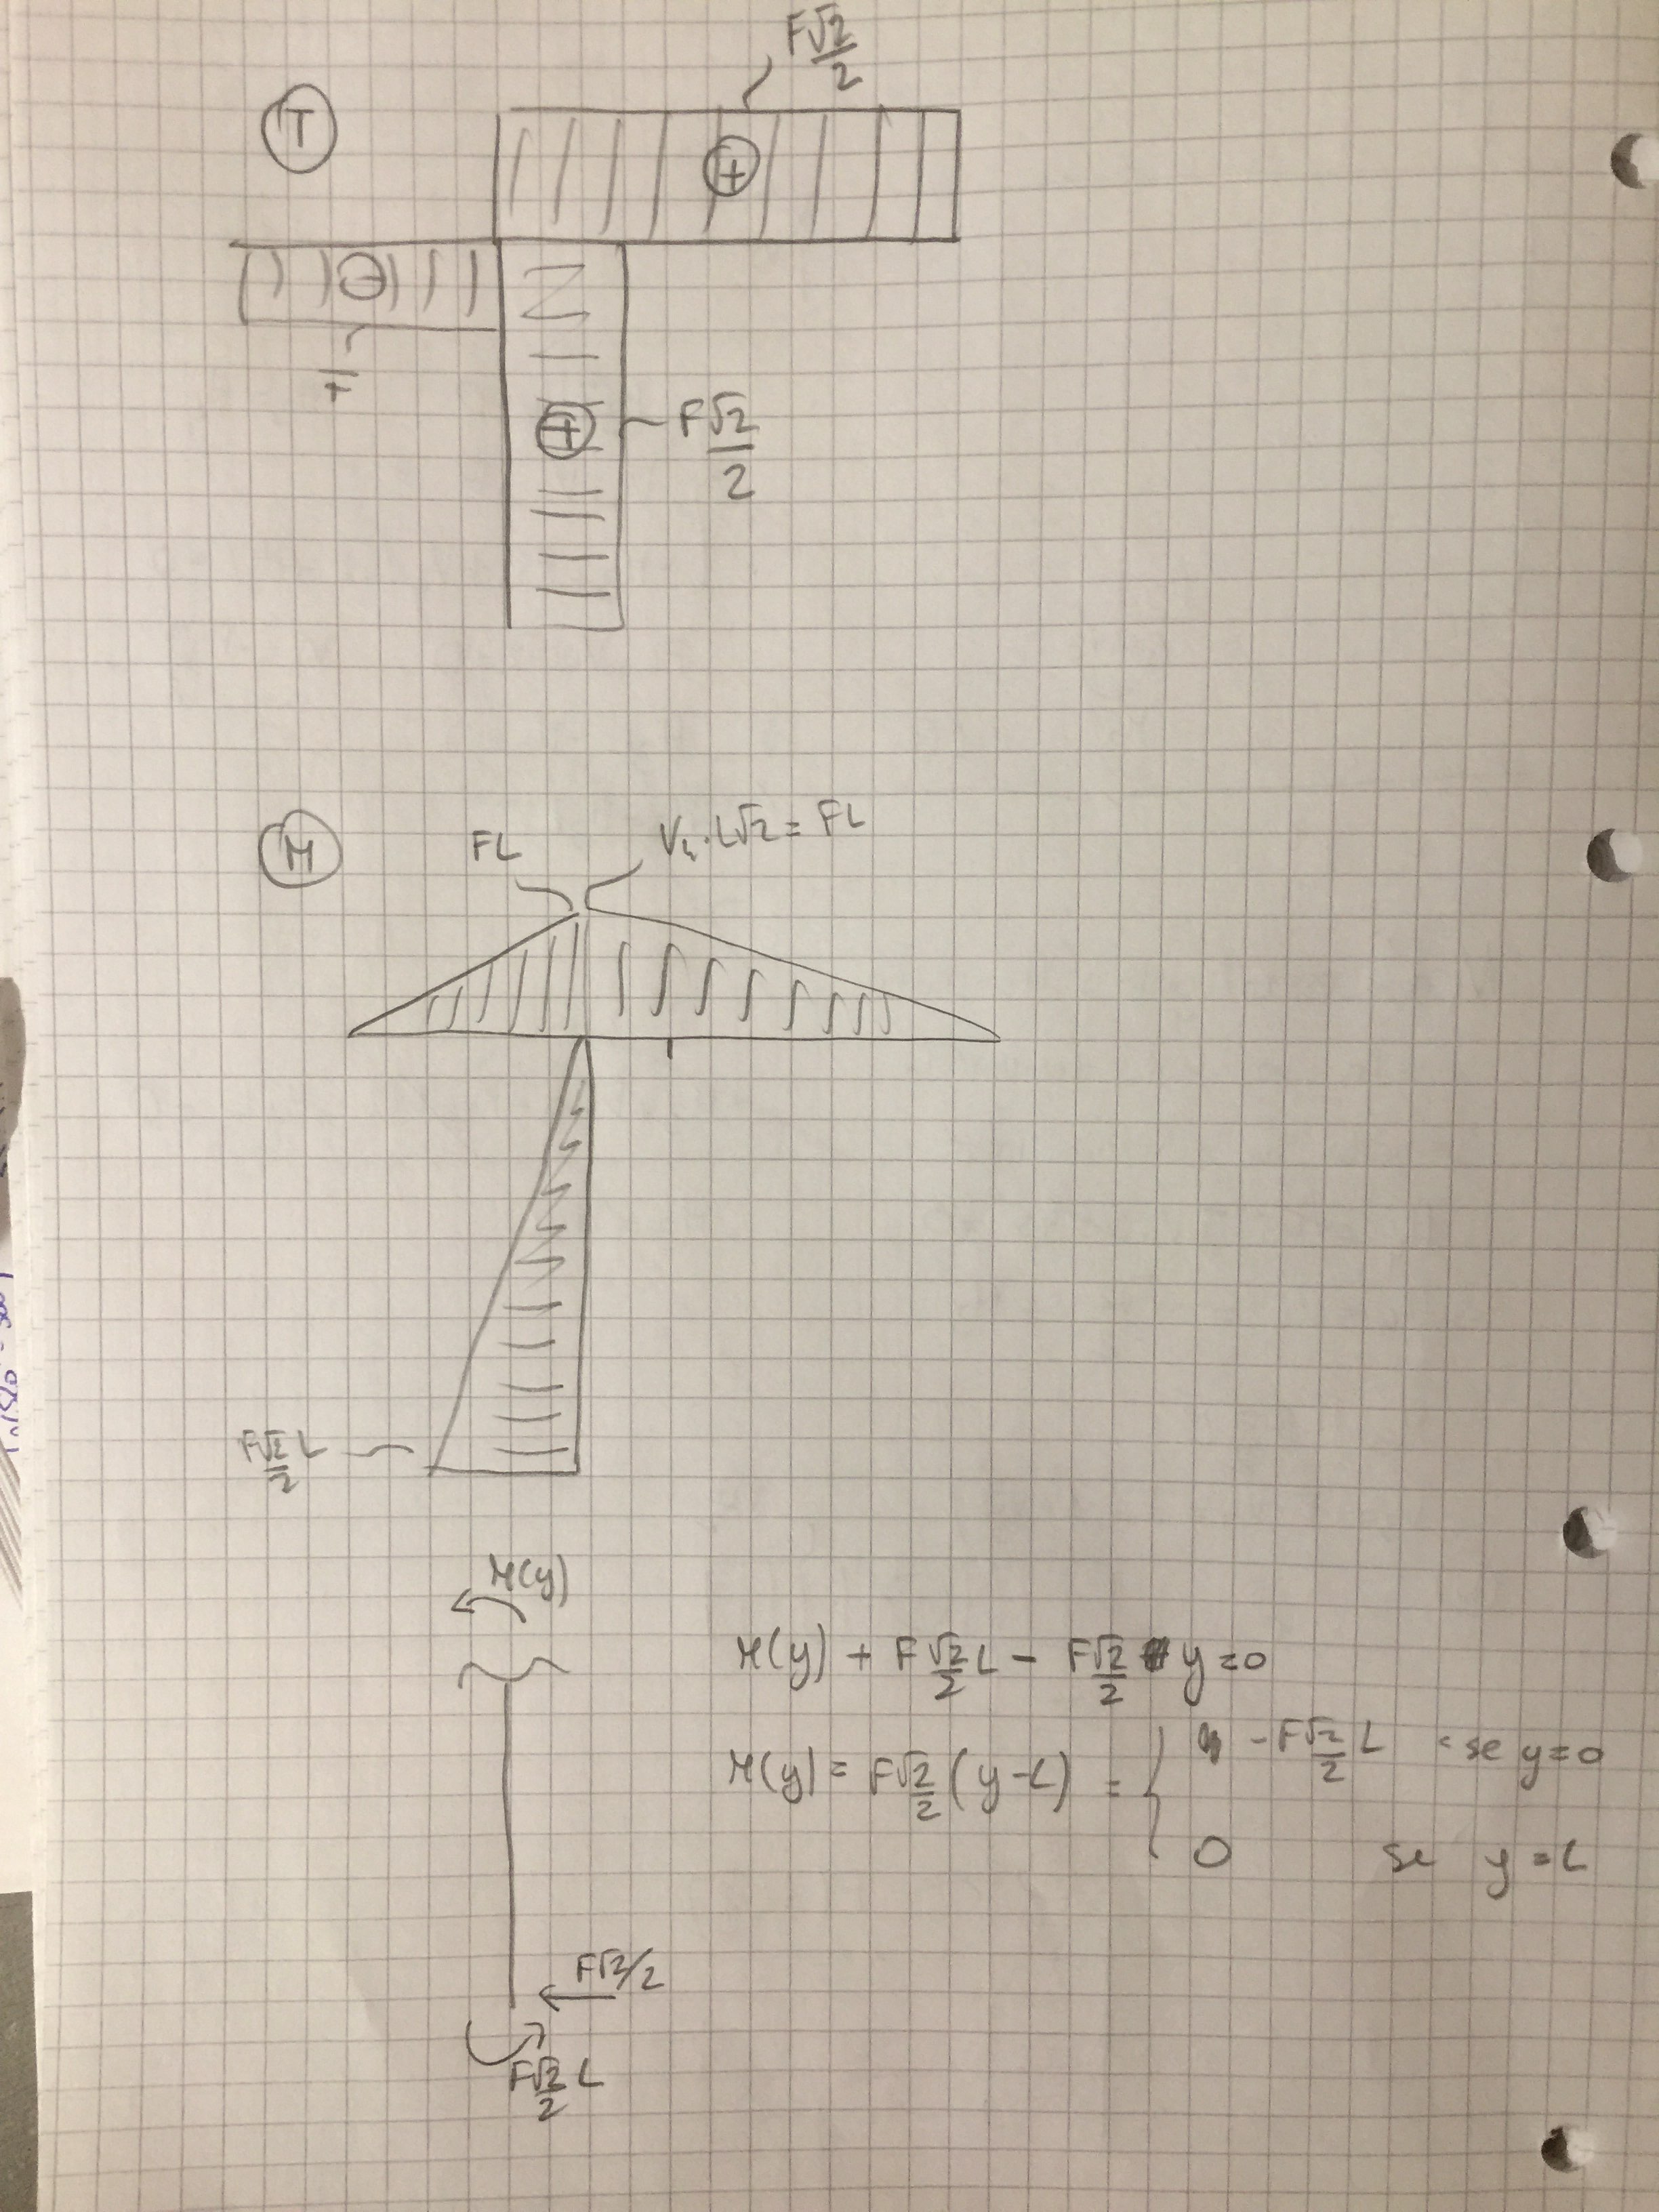 F√2/2
T
+
−
F
+
F√2/2
M
FL
V₄·L√2 = FL
F√2/2 L
M(y)
M(y) + F√2/2 L − F√2/2 y = 0
M(y) = F√2/2 (y−L) = { −F√2/2 L se y=0
0 se y = L
F√2/2
F√2/2 L